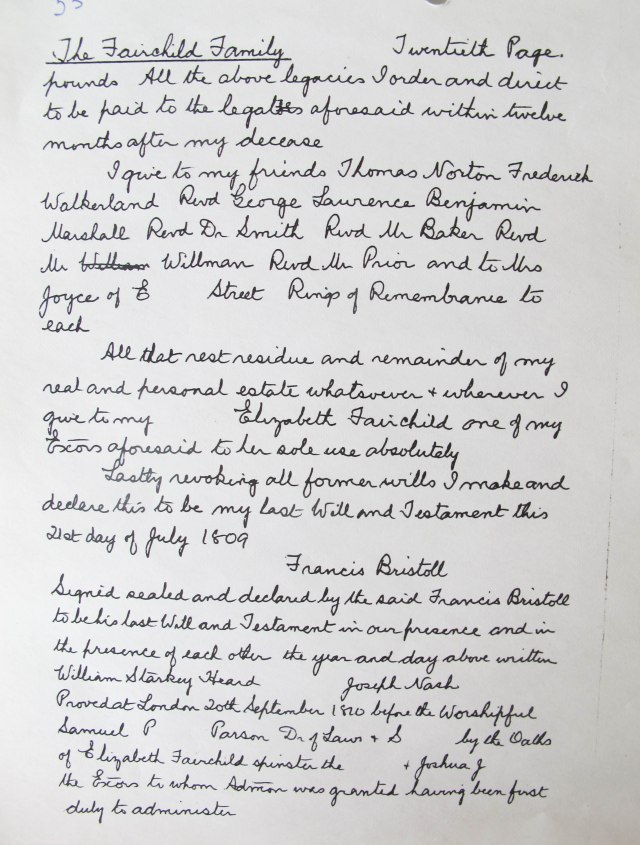 The Fairchild Family Twentieth Page.
pounds All the above legacies I order and direct
to be paid to the legatees aforesaid within twelve
months after my decease
I give to my friends Thomas Norton Frederick
Walkerland Revd George Laurence Benjamin
Marshall Revd Dr Smith Revd Mr Baker Revd
Mr William Willman Revd Mr Prior and to Mrs
Joyce of E Street Rings of Remembrance to
each
All that rest residue and remainder of my
real and personal estate whatsoever + wherever I
give to my Elizabeth Fairchild one of my
Exors aforesaid to her sole use absolutely
Lastly revoking all former wills I make and
declare this to be my last Will and Testament this
21st day of July 1809
Francis Bristoll
Signed sealed and declared by the said Francis Bristoll
to be his last Will and Testament in our presence and in
the presence of each other the year and day above written
William Starkey Heard Joseph Nash
Proved at London 20th September 1810 before the Worshipful
Samuel P Parson Dr of Laws + S by the Oaths
of Elizabeth Fairchild spinster the + Joshua J
the Exors to whom Admon was granted having been first
duly to administer